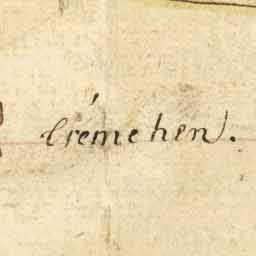 Crémehen.